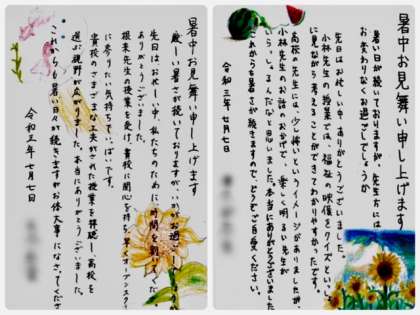 暑中お見舞い申し上げます
暑い日が続いておりますが、先生方には
お変わりなくお過ごしでしょうか
先日はお忙しい中、ありがとうございました。
小林先生の授業では、福祉の映像をクイズといっしょ
に見ながら考えることができてわかりやすかったです。
高校の先生には、少し怖いというイメージがありましたが、
小林先生のお話のお かげで、楽しく明るい先生が
いらっしゃるんだなと思いました。本当にありがとうございました
これからも暑さが続きますので、どうぞご自愛ください。
令和三年七月七日
暑中お見舞い申し上げます
厳しい暑さが続いておりますがいかがお過ごしでしょうか
先日はお忙しい中、私たちのために時間を割いて
ありがとうございました。
根来先生の授業を受け、貴校に関心を持ち、早くオープンスクール
に参りたい気持ちでいっぱいです。
貴校のさまざまな工夫がされた授業を拝聴し、高校を
選ぶ視野が広がりました。本当にありがとうございました。
これからも暑い日々が続きますがお体大事になさってくださ
令和三年七月七日